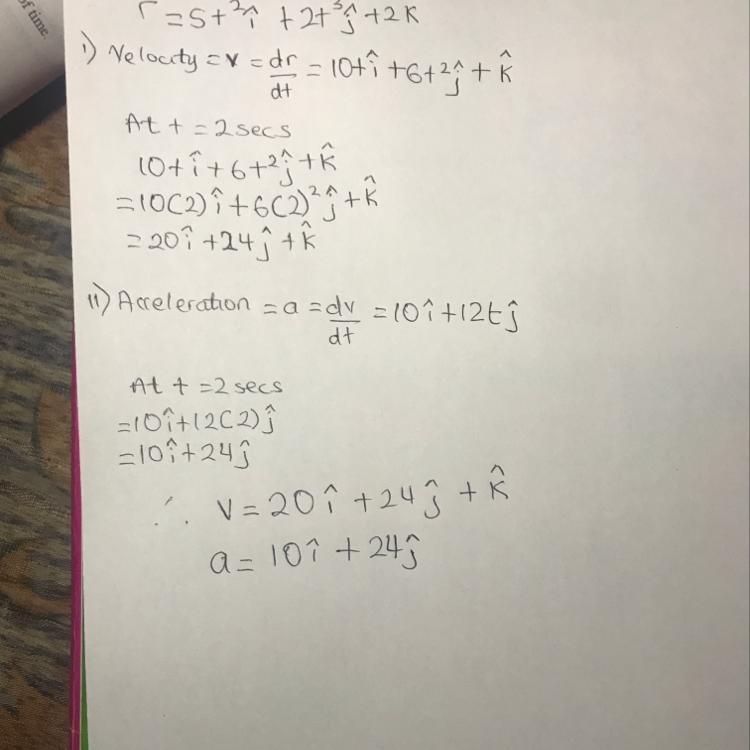 of time.
r = 5t²î + 2t³ĵ + 2k
i) Velocity = v = dr/dt = 10tî + 6t²ĵ + k̂
At t = 2 secs
10tî + 6t²ĵ + k̂
= 10(2)î + 6(2)²ĵ + k̂
= 20î + 24ĵ + k̂
ii) Acceleration = a = dv/dt = 10î + 12tĵ
At t = 2 secs
= 10î + 12(2)ĵ
= 10î + 24ĵ
∴ v = 20î + 24ĵ + k̂
a = 10î + 24ĵ